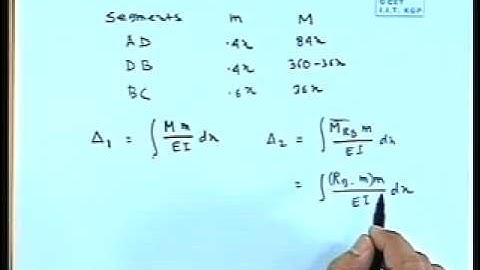 © CET
I.I.T. KGP
Segments m M
AD .4x 84x
DB .4x 360-36x
BC .6x 36x
Δ₁ = ∫ Mm/EI dx Δ₂ = ∫ M̅_{R_B} m/EI dx
= ∫ (R_B. m)m/EI dx